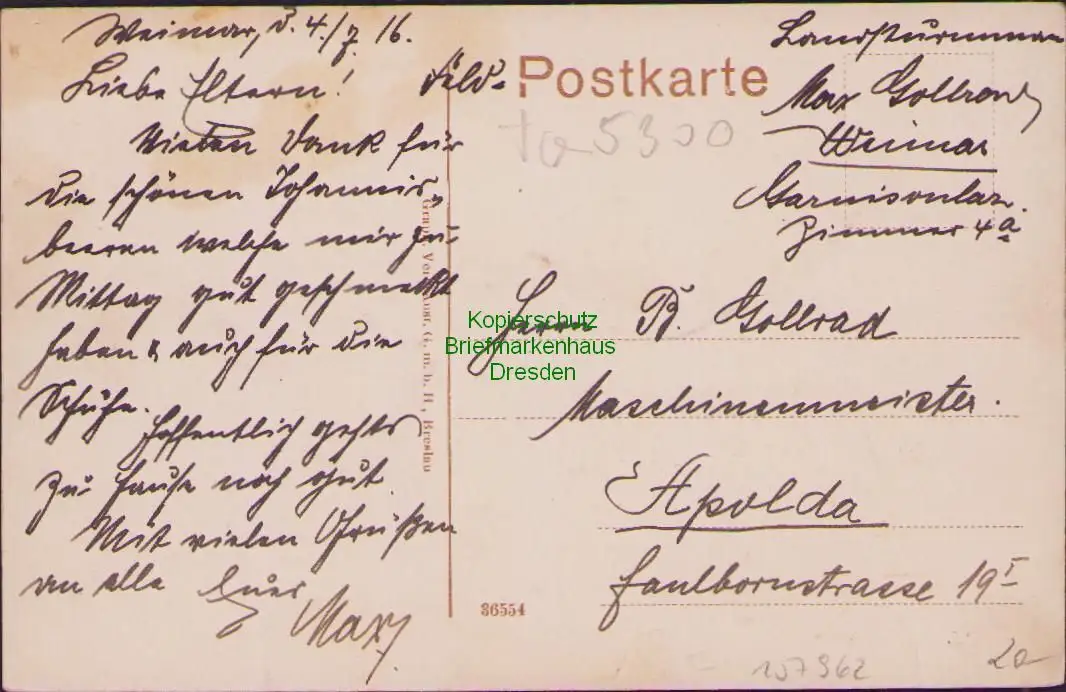 Weimar, d. 4./7. 16.
Liebe Eltern!
Vielen Dank für
die schönen Johannis-
beeren welche mir zu
Mittag gut geschmeckt
haben & auch für die
Schuhe.
Hoffentlich gehts
zu Hause noch gut
Mit vielen Grüßen
an alle Euer
Max
Feld-Postkarte
5300
Landsturmmann
Max Gollrad
Weimar
Garnisonlaz.
Zimmer 4a
Herrn B. Gollrad
Maschinenmeister.
Apolda
Faulbornstrasse 19 I
Kopierschutz
Briefmarkenhaus
Dresden
G. m. b. H., Breslau
36554
157362
20